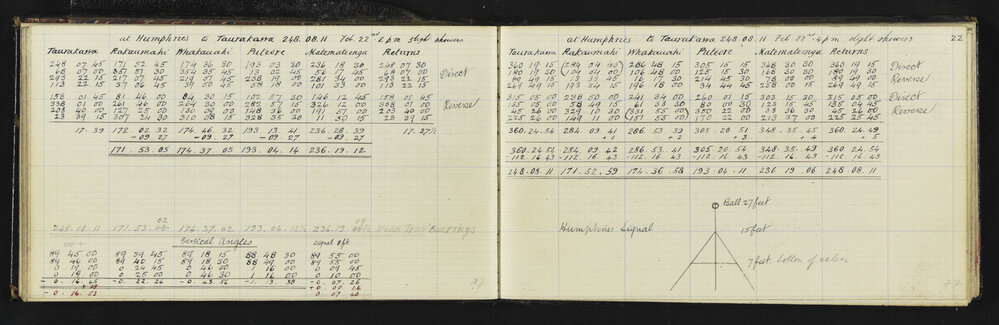 at Humphries to Taurakawa 248.08.11 Feb 22nd 2 pm slight showers
Taurakawa Rakaumahi Whakauahi Returns
248 07 45 171 52 45 174 36 30 193 03 30 236 18 30 248 07 30
68 07 00 351 51 30 354 35 45 13 02 45 56 17 45 68 07 00 Direct
293 22 15 217 07 45 219 51 45 238 19 00 281 34 00 293 22 15
113 22 15 37 06 45 39 50 45 58 18 00 101 33 00 113 22 15
158 01 45 81 46 00 84 30 15 102 57 30 146 12 45 158 01 45
338 01 00 261 46 00 264 30 00 282 57 15 326 12 00 338 01 00 Reverse
203 40 00 127 25 15 130 09 00 148 36 00 191 51 00 203 40 00
23 39 15 307 24 30 310 08 15 328 35 30 11 50 15 23 39 15
17.39 172 02 32 174.46 32 193 13 41 236.28 39 17.37½
-09.27 -09.27 -09.27 -09.27
171.53.05 174.37.05 193.04.14 236.19.12
02 09
248.08.11 171.53. 174.37.02 193.04.12½ 236.19. Mean True Bearings
Vertical Angles signal 8ft
89 45 00 89 39 45 89 18 15 88 48 30 89 55 00
89 46 00 89 35 00 89 18 30 88 49 00 89 55 00
0 19 00 0 24 45 0 46 00 1 16 00 0 09 45
0 19 00 0 25 00 0 46 30 1 16 00 0 10 00
-0.16.45 -0.22.24 -0.43.56 -1.13.38 -0.07.26
+0.00 14
-0.16.53 0 07 40
77
at Humphries to Taurakawa 248.08.11 Feb 22nd 4 pm slight showers 22
Taurakawa Rakaumahi Whakauahi Returns
360 19 15 284 04 45 286 48 15 305 15 15 348 30 30 360 19 15 Direct
180 19 30 104 04 00 106 48 00 125 15 30 168 30 30 180 19 30
89 49 15 13 33 45 16 17 30 34 44 45 78 00 15 89 49 00 Reverse
269 49 15 193 34 15 196 18 00 214 45 30 258 00 15 269 49 15
315 05 00 238 50 00 241 34 00 260 01 15 303 15 30 315 05 00 Direct
135 05 00 58 49 15 61 33 30 80 00 30 123 15 45 135 04 45
45 26 00 329 10 30 331 55 00 350 22 00 33 36 30 45 26 00 Reverse
225 26 00 149 11 00 151 55 00 170 22 00 213 37 00 225 25 45
360.24.54 284.09 41 286.53 39 305.20 51 348.35.45 360 24.49
+1 +2 +3 +4 +5
360.24.54 284.09 42 286.53.41 305 20 54 348.35.49 360 24 54
-112.16 43 -112.16 43 -112.16.43 -112.16.43 -112.16 43 -112.16 43
248.08.11 171.52.59 174.36.58 193 04 11 236 19 06 248.08.11
Ball 27 feet
Humphries Signal 15 feet
7 feet bottom of
77